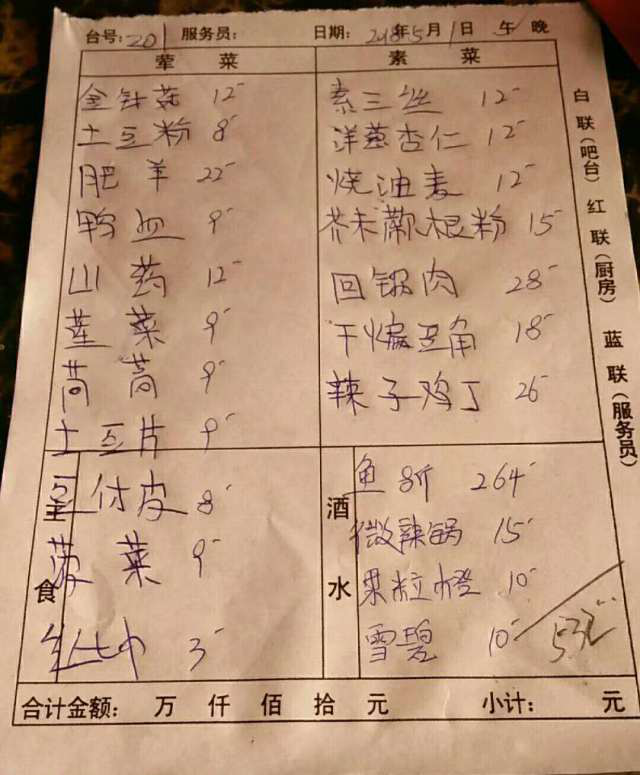 台号: 201 服务员: 日期: 2018年5月1日 午 晚
荤菜 素菜
金针菇 12-
土豆粉 8-
肥羊 22-
鸭血 9-
山药 12-
茼蒿 9-
土豆片 9-
豆付皮 8-
菠菜 9-
3-
素三丝 12-
洋葱杏仁 12-
烧油麦 12-
芥末蕨根粉 15-
回锅肉 28-
干煸豆角 18-
辣子鸡丁 26-
主食
酒水
鱼 8斤 264-
微辣锅 15-
果粒橙 10-
雪碧 10-
532
合计金额: 万 仟 佰 拾 元 小计: 元
白联(吧台) 红联(厨房) 蓝联(服务员)